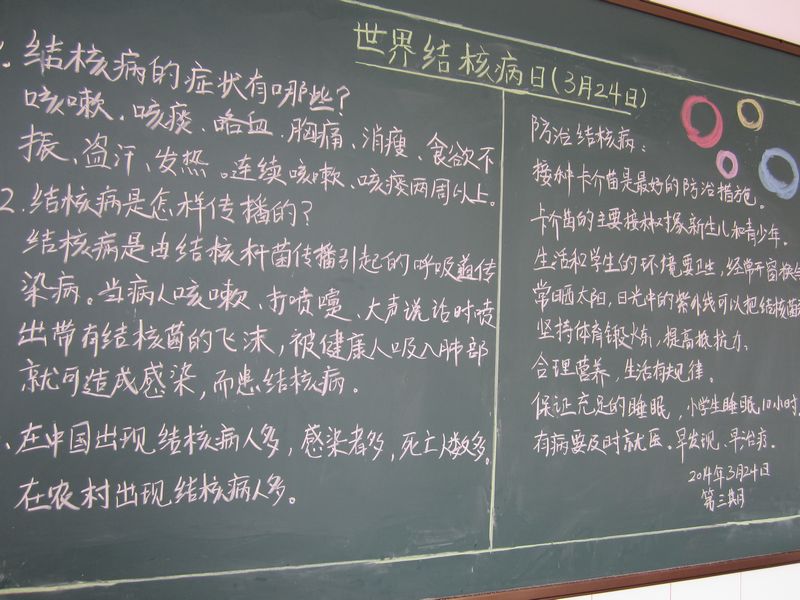 世界结核病日(3月24日)
结核病的症状有哪些?
咳嗽、咳痰、咯血、胸痛、消瘦、食欲不
振、盗汗、发热。连续咳嗽、咳痰两周以上。
2.结核病是怎样传播的?
结核病是由结核杆菌传播引起的呼吸道传
染病。当病人咳嗽、打喷嚏、大声说话时喷
出带有结核菌的飞沫,被健康人吸入肺部
就可造成感染,而患结核病。
在中国出现结核病人多,感染者多,死亡人数多。
在农村出现结核病人多。
防治结核病:
接种卡介苗是最好的防治措施。
卡介苗的主要接种对象新生儿和青少年。
生活和学生的环境要卫生,经常开窗换气
常晒太阳,日光中的紫外线可以把结核菌
坚持体育锻炼,提高抵抗力。
合理营养,生活有规律。
保证充足的睡眠,小学生睡眠10小时,
有病要及时就医。早发现、早治疗。
2014年3月24日
第三期